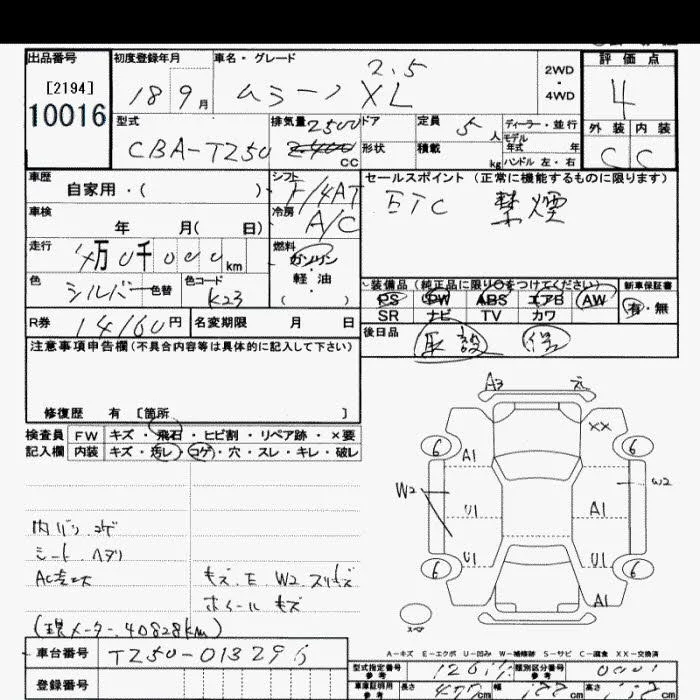 出品番号 初度登録年月 車名・グレード 評価点
[2194] 2.5 2WD・4WD
10016 18 9月 ムラーノ XL 4
型式 排気量 2500 CC ドア形状 定員 5人 積載 kg ディーラー・並行 モデル年式 年 ハンドル 左・右 外装 内装
CBA-TZ50 C C
車歴 シフト セールスポイント (正常に機能するものに限ります)
自家用・( ) F/4AT ETC 禁煙
車検 年 月( 日) 冷房 A/C
走行 4万0千000km 燃料 ガソリン・軽油
色 シルバー 色替 色コード K23 装備品(純正品に限り○をつけてください) 新車保証書
PS PW ABS エアB AW 有・無
SR ナビ TV カワ
R券 14160円 名変期限 月 日 後日品 取説 保
注意事項申告欄(不具合内容等は具体的に記入して下さい)
修復歴 有 [箇所 ]
検査員 FW キズ・飛石・ヒビ割・リペア跡・×要
記入欄 内装 キズ・汚レ・コゲ・穴・スレ・キレ・破レ
A3
XX
6 A1 6
W2 U1 A1 W2
U1 U1
6 6
A1
内バリ コゲ
シート ヘタリ
キズ.E.W2.スリキズ
ホイールキズ
(現メーター40828km)
A-キズ E-エクボ U-凹み W-補修跡 S-サビ C-腐食 XX-交換済
車台番号 TZ50-013296
登録番号
型式指定番号 参考 類別区分番号 参考 0001
車庫証明用 参考 長さ 477cm 幅 188cm 高さ cm